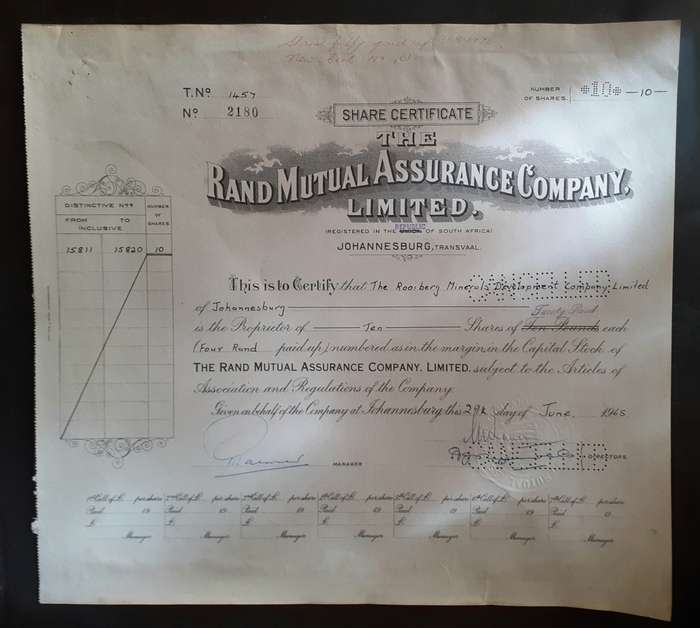 T. Nº 1457
Nº 2180
NUMBER OF SHARES. *10* —10—
SHARE CERTIFICATE
THE
RAND MUTUAL ASSURANCE COMPANY,
LIMITED.
(REGISTERED IN THE REPUBLIC OF SOUTH AFRICA)
JOHANNESBURG, TRANSVAAL.
DISTINCTIVE Nºs NUMBER OF SHARES
FROM TO
INCLUSIVE
15811 15820 10
CANCELLED
This is to Certify that The Rooiberg Minerals Development Company Limited
of Johannesburg
Twenty Rand
is the Proprietor of Ten Shares of Ten Pounds each
(Four Rand paid up) numbered as in the margin in the Capital Stock of
THE RAND MUTUAL ASSURANCE COMPANY, LIMITED, subject to the Articles of
Association and Regulations of the Company.
Given on behalf of the Company at Johannesburg this 29th day of June 1965
MANAGER
DIRECTORS
1st Call of £ per share 2nd Call of £ per share 3rd Call of £ per share 4th Call of £ per share 5th Call of £ per share 6th Call of £ per share 7th Call of £ per share
Paid 19 Paid 19 Paid 19 Paid 19 Paid 19 Paid 19 Paid 19
£ £ £ £ £ £ £
Manager Manager Manager Manager Manager Manager Manager